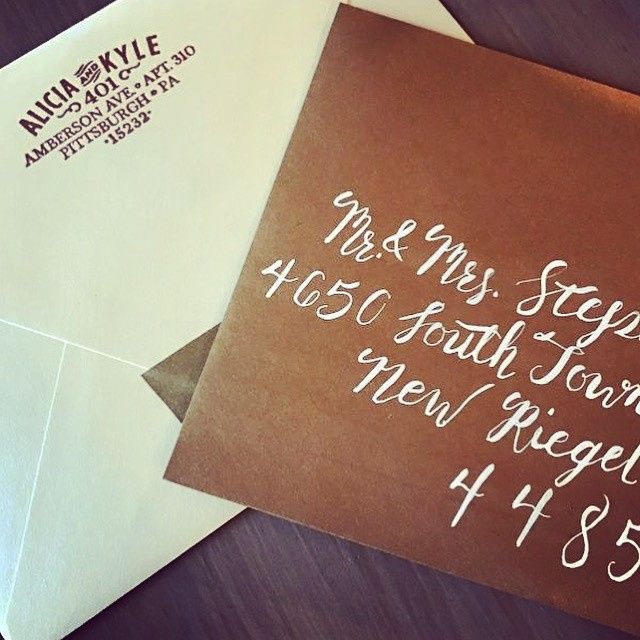 ALICIA AND KYLE
401
AMBERSON AVE. • APT. 310
PITTSBURGH • PA
•15232•
Mr. & Mrs.
4650 South Town
New Riegel
4485